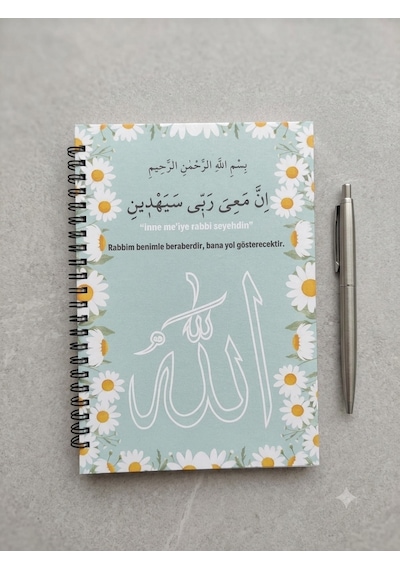 بِسْمِ اللّٰهِ الرَّحْمٰنِ الرَّحِيمِ
اِنَّ مَعِيَ رَبّ۪ي سَيَهْد۪ينِ
"inne me'iye rabbi seyehdin"
Rabbim benimle beraberdir, bana yol gösterecektir.
الله